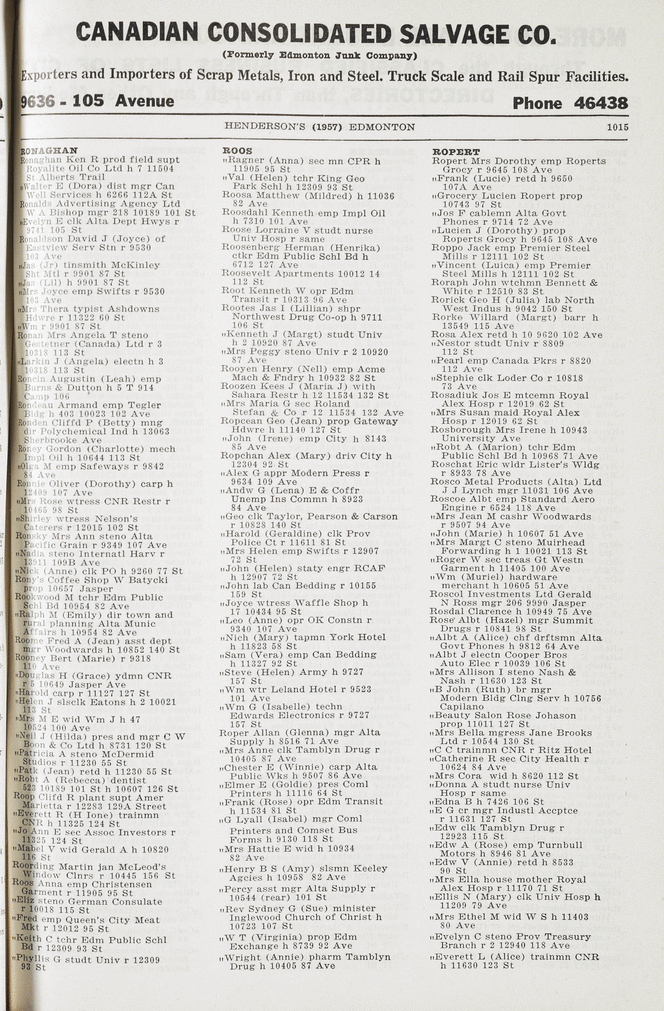 CANADIAN CONSOLIDATED SALVAGE CO.
(Formerly Edmonton Junk Company)
Exporters and Importers of Scrap Metals, Iron and Steel. Truck Scale and Rail Spur Facilities.
9636 - 105 Avenue Phone 46438
HENDERSON'S (1957) EDMONTON 1015
RONAGHAN
Ronaghan Ken R prod field supt
Royalite Oil Co Ltd h 7 11504
St Alberts Trail
„Walter E (Dora) dist mgr Can
Well Services h 6266 112A St
Ronalds Advertising Agency Ltd
W A Bishop mgr 218 10189 101 St
„Evelyn E clk Alta Dept Hwys r
9741 105 St
Ronaldson David J (Joyce) of
Eastview Serv Stn r 9530
103 Ave
„Jas (Jr) tinsmith McKinley
Sht Mtl r 9901 87 St
„Jas (Lil) h 9901 87 St
„Mrs Joyce emp Swifts r 9530
103 Ave
„Mrs Thera typist Ashdowns
Hdwre r 11322 60 St
„Wm r 9901 87 St
Ronan Mrs Angela T steno
Gestetner (Canada) Ltd r 3
10318 113 St
„Larkin J (Angela) electn h 3
10318 113 St
Roncin Augustin (Leah) emp
Burns & Dutton h 5 T 914
Camp 106
Rondeau Armand emp Tegler
Bldg h 403 10023 102 Ave
Ronden Cliffd P (Betty) mng
dir Polychemical Ind h 13063
Sherbrooke Ave
Roney Gordon (Charlotte) mech
Impl Oil h 10644 113 St
„Olga M emp Safeways r 9842
84 Ave
Ronnie Oliver (Dorothy) carp h
12409 107 Ave
„Mrs Rose wtress CNR Restr r
10465 98 St
„Shirley wtress Nelson's
Caterers r 12015 102 St
Ronsky Mrs Ann steno Alta
Pacific Grain r 9349 107 Ave
„Nadia steno Internatl Harv r
13911 109B Ave
„Nick (Anne) clk PO h 9260 77 St
Rony's Coffee Shop W Batycki
prop 10657 Jasper
Rookwood M tchr Edm Public
Schl Bd 10954 82 Ave
„Ralph M (Emily) dir town and
rural planning Alta Munic
Affairs h 10954 82 Ave
Roome Fred A (Jean) asst dept
mgr Woodwards h 10852 140 St
Rooney Bert (Marie) r 9318
110 Ave
„Douglas H (Grace) ydmn CNR
r 5 10649 Jasper Ave
„Harold carp r 11127 127 St
„Helen J slsclk Eatons h 2 10021
113 St
„Mrs M E wid Wm J h 47
10524 100 Ave
„Neil J (Hilda) pres and mgr C W
Boon & Co Ltd h 8731 120 St
„Patricia A steno McDermid
Studios r 11230 55 St
„Patk (Jean) retd h 11230 55 St
„Robt A (Rebecca) dentist
523 10189 101 St h 10607 126 St
Roop Cliffd R plant supt Amer
Marietta r 12283 129A Street
„Everett R (H Ione) trainmn
CNR h 11325 124 St
„Jo Ann E sec Assoc Investors r
11325 124 St
„Mabel V wid Gerald A h 10820
116 St
Roording Martin jan McLeod's
Window Clnrs r 10445 156 St
Roos Anna emp Christensen
Garment r 11905 95 St
„Eliz steno German Consulate
r 10018 115 St
„Fred emp Queen's City Meat
Mkt r 12012 95 St
„Keith C tchr Edm Public Schl
Bd r 12309 93 St
„Phyllis G studt Univ r 12309
93 St
ROOS
„Ragner (Anna) sec mn CPR h
11905 95 St
„Val (Helen) tchr King Geo
Park Schl h 12309 93 St
Roosa Matthew (Mildred) h 11036
82 Ave
Roosdahl Kenneth emp Impl Oil
h 7310 101 Ave
Roose Lorraine V studt nurse
Univ Hosp r same
Roosenberg Herman (Henrika)
ctkr Edm Public Schl Bd h
6712 127 Ave
Roosevelt Apartments 10012 14
112 St
Root Kenneth W opr Edm
Transit r 10313 96 Ave
Rootes Jas I (Lillian) shpr
Northwest Drug Co-op h 9711
106 St
„Kenneth J (Margt) studt Univ
h 2 10920 87 Ave
„Mrs Peggy steno Univ r 2 10920
87 Ave
Rooyen Henry (Nell) emp Acme
Mach & Fndry h 10932 82 St
Roozen Kees J (Maria J) with
Sahara Restr h 12 11534 132 St
„Mrs Maria G sec Roland
Stefan & Co r 12 11534 132 Ave
Ropcean Geo (Jean) prop Gateway
Hdwre h 11140 127 St
„John (Irene) emp City h 8143
85 Ave
Ropchan Alex (Mary) driv City h
12304 92 St
„Alex G appr Modern Press r
9634 109 Ave
„Andw G (Lena) E & Coffr
Unemp Ins Commn h 8923
84 Ave
„Geo clk Taylor, Pearson & Carson
r 10828 140 St
„Harold (Geraldine) clk Prov
Police Ct r 11611 81 St
„Mrs Helen emp Swifts r 12907
72 St
„John (Helen) staty engr RCAF
h 12907 72 St
„John lab Can Bedding r 10155
159 St
„Joyce wtress Waffle Shop h
17 10434 95 St
„Leo (Anne) opr OK Constn r
9340 107 Ave
„Nich (Mary) tapmn York Hotel
h 11823 58 St
„Sam (Vera) emp Can Bedding
h 11327 92 St
„Steve (Helen) Army h 9727
157 St
„Wm wtr Leland Hotel r 9523
101 Ave
„Wm G (Isabelle) techn
Edwards Electronics r 9727
157 St
Roper Allan (Glenna) mgr Alta
Supply h 8516 71 Ave
„Mrs Anne clk Tamblyn Drug r
10405 87 Ave
„Chester E (Winnie) carp Alta
Public Wks h 9507 86 Ave
„Elmer E (Goldie) pres Coml
Printers h 11116 64 St
„Frank (Rose) opr Edm Transit
h 11534 81 St
„G Lyall (Isabel) mgr Coml
Printers and Comset Bus
Forms h 9130 118 St
„Mrs Hattie E wid h 10934
82 Ave
„Henry B S (Amy) slsmn Keeley
Agcies h 10958 82 Ave
„Percy asst mgr Alta Supply r
10544 (rear) 101 St
„Rev Sydney G (Sue) minister
Inglewood Church of Christ h
10723 107 St
„W T (Virginia) prop Edm
Exchange h 8739 92 Ave
„Wright (Annie) pharm Tamblyn
Drug h 10405 87 Ave
ROPERT
Ropert Mrs Dorothy emp Roperts
Grocy r 9645 108 Ave
„Frank (Lucie) retd h 9650
107A Ave
„Grocery Lucien Ropert prop
10743 97 St
„Jos F cablemn Alta Govt
Phones r 9714 72 Ave
„Lucien J (Dorothy) prop
Roperts Grocy h 9645 108 Ave
Roppo Jack emp Premier Steel
Mills r 12111 102 St
„Vincent (Luica) emp Premier
Steel Mills h 12111 102 St
Roraph John wtchmn Bennett &
White r 12510 83 St
Rorick Geo H (Julia) lab North
West Indus h 9042 150 St
Rorke Willard (Margt) barr h
13549 115 Ave
Rosa Alex retd h 10 9620 102 Ave
„Nestor studt Univ r 8809
112 St
„Pearl emp Canada Pkrs r 8820
112 Ave
„Stephie clk Loder Co r 10818
73 Ave
Rosadiuk Jos E mtcemn Royal
Alex Hosp r 12019 62 St
„Mrs Susan maid Royal Alex
Hosp r 12019 62 St
Rosborough Mrs Irene h 10943
University Ave
„Robt A (Marion) tchr Edm
Public Schl Bd h 10968 71 Ave
Roschat Eric wldr Lister's Wldg
r 8933 78 Ave
Rosco Metal Products (Alta) Ltd
J J Lynch mgr 11031 106 Ave
Roscoe Albt emp Standard Aero
Engine r 6524 118 Ave
„Mrs Jean M cashr Woodwards
r 9507 94 Ave
„John (Marie) h 10607 51 Ave
„Mrs Margt C steno Muirhead
Forwarding h 1 10021 113 St
„Roger W sec treas Gt Westn
Garment h 11405 100 Ave
„Wm (Muriel) hardware
merchant h 10605 51 Ave
Roscol Investments Ltd Gerald
N Ross mgr 206 9990 Jasper
Rosdal Clarence h 10949 75 Ave
Rose Albt (Hazel) mgr Summit
Drugs r 10841 98 St
„Albt A (Alice) chf drftsmn Alta
Govt Phones h 9812 64 Ave
„Albt J electn Cooper Bros
Auto Elec r 10039 106 St
„Mrs Allison I steno Nash &
Nash r 11630 123 St
„B John (Ruth) br mgr
Modern Bldg Clng Serv h 10756
Capilano
„Beauty Salon Rose Johason
prop 11011 127 St
„Mrs Bella mgress Jane Brooks
Ltd r 10544 130 St
„C C trainmn CNR r Ritz Hotel
„Catherine R sec City Health r
10624 84 Ave
„Mrs Cora wid h 8620 112 St
„Donna A studt nurse Univ
Hosp r same
„Edna B h 7426 106 St
„E G cr mgr Industl Accptce
r 11631 127 St
„Edw clk Tamblyn Drug r
12923 115 St
„Edw A (Rose) emp Turnbull
Motors h 8946 81 Ave
„Edw V (Annie) retd h 8533
90 St
„Mrs Ella house mother Royal
Alex Hosp r 11170 71 St
„Ellis N (Mary) clk Univ Hosp h
11209 79 Ave
„Mrs Ethel M wid W S h 11403
80 Ave
„Evelyn C steno Prov Treasury
Branch r 2 12940 118 Ave
„Everett L (Alice) trainmn CNR
h 11630 123 St